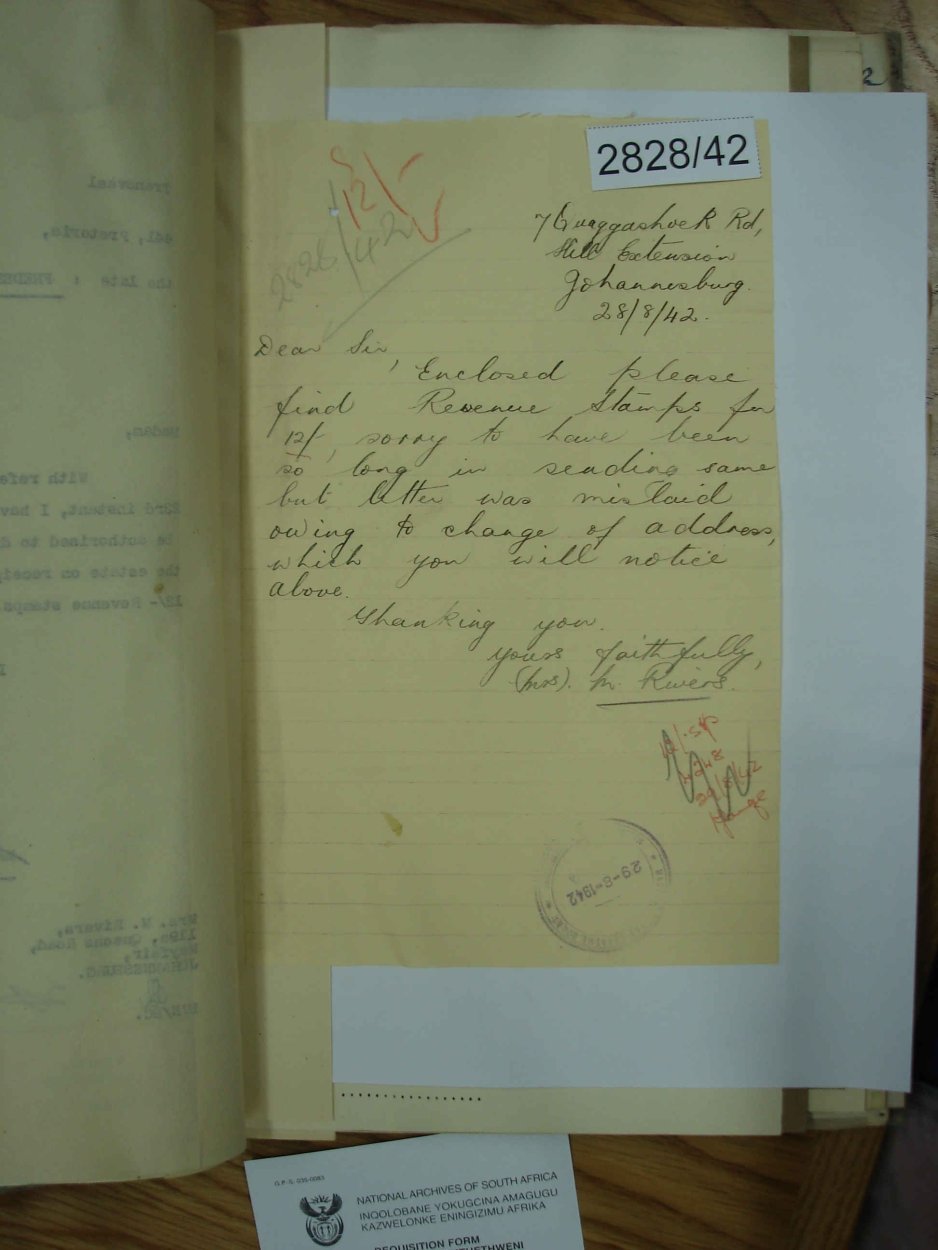 2828/42
12/-
2828/42
7 Quaggashoek Rd,
Hill Extension
Johannesburg.
28/8/42.
Dear Sir,
Enclosed please
find Revenue Stamps for
12/-, sorry to have been
so long in sending same
but letter was mislaid
owing to change of address,
which you will notice
above.
Thanking you.
yours faithfully,
(Mrs). M. Rivers.
29/8/42
29-8-1942
Transvaal
Pretoria,
the late : FREDE
Madam,
With refe
23rd instant, I hav
be authorised to
the estate on receip
12/- Revenue stamps
Mrs. M. Rivers,
119a, Queens Road,
Mayfair,
JOHANNESBURG.
2
G.P.-S. 035-0083
NATIONAL ARCHIVES OF SOUTH AFRICA
INQOLOBANE YOKUGCINA AMAGUGU
KAZWELONKE ENINGIZIMU AFRIKA
REQUISITION FORM